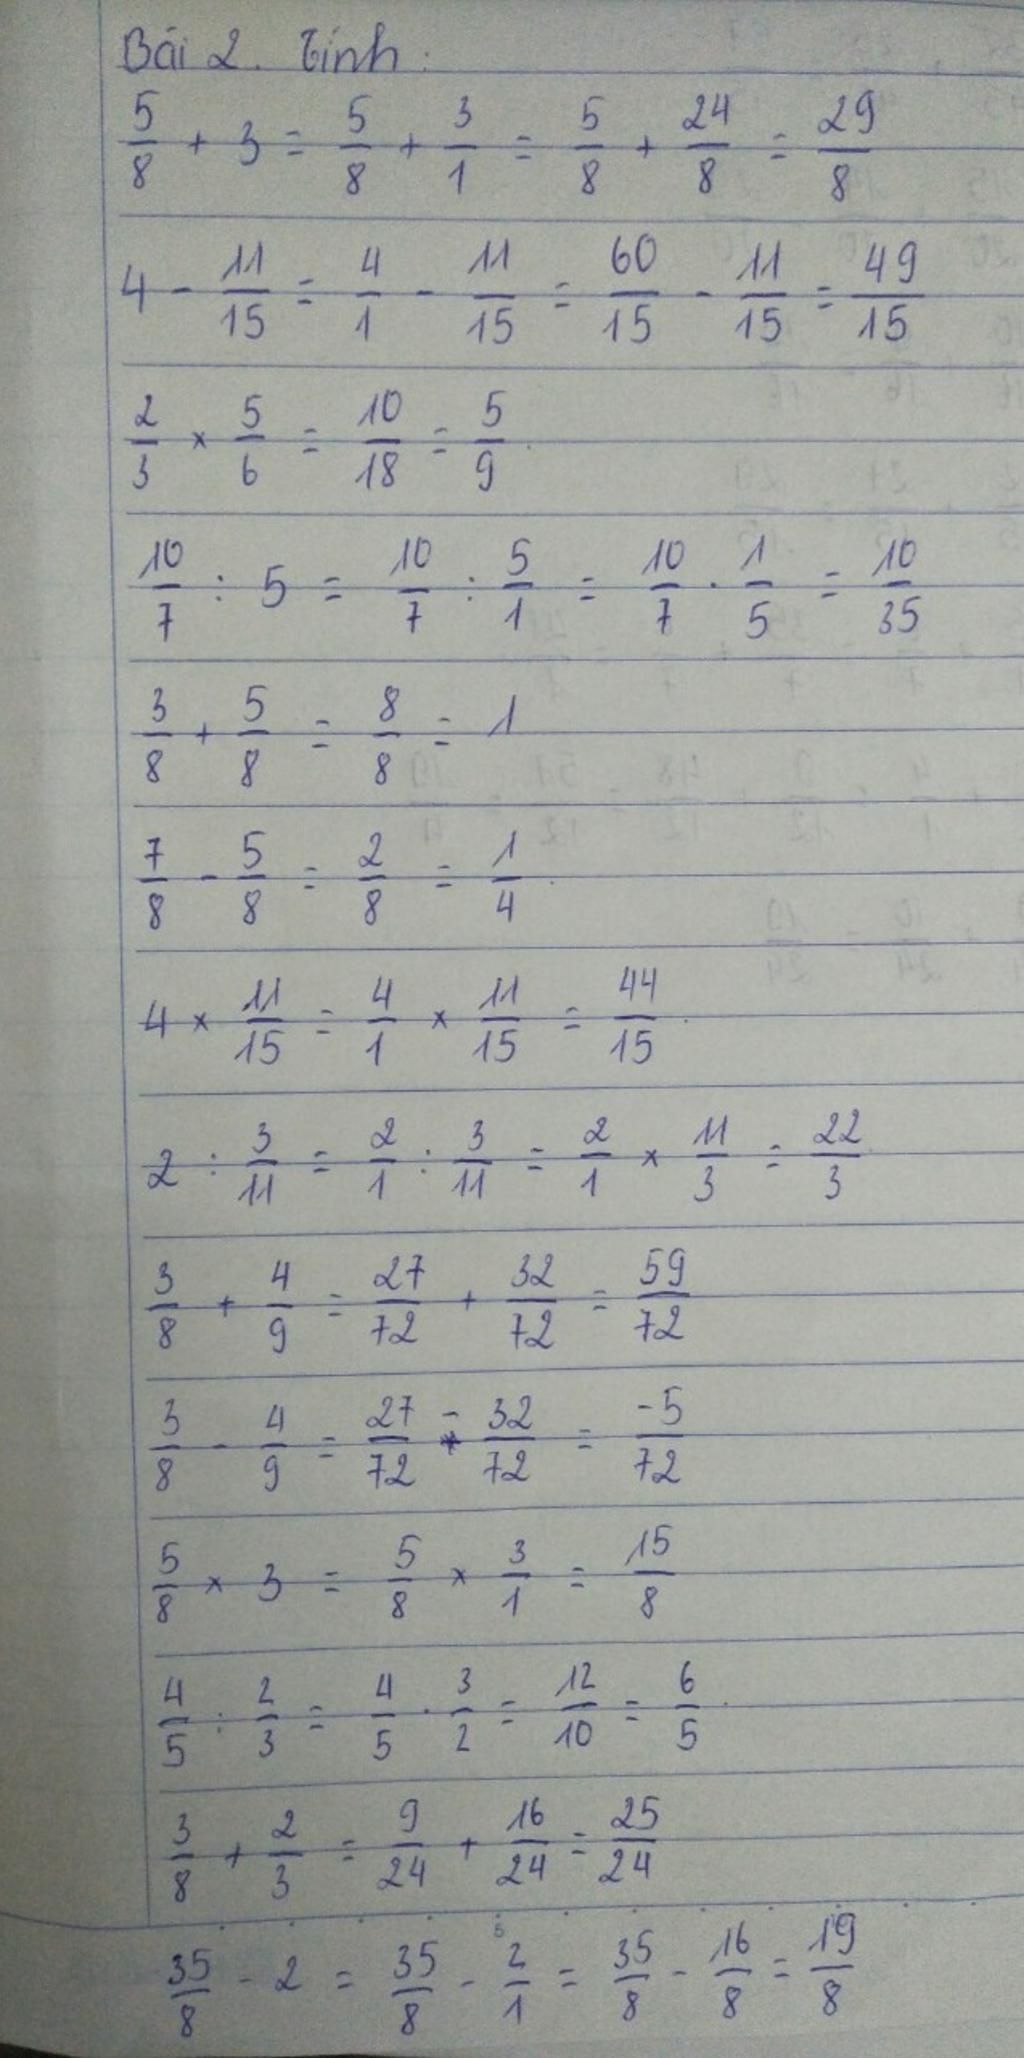 Bài 2. Tính:
5/8 + 3 = 5/8 + 3/1 = 5/8 + 24/8 = 29/8
4 - 11/15 = 4/1 - 11/15 = 60/15 - 11/15 = 49/15
2/3 × 5/6 = 10/18 = 5/9.
10/7 : 5 = 10/7 : 5/1 = 10/7 . 1/5 = 10/35
3/8 + 5/8 = 8/8 = 1
7/8 - 5/8 = 2/8 = 1/4.
4 × 11/15 = 4/1 × 11/15 = 44/15.
2 : 3/11 = 2/1 : 3/11 = 2/1 × 11/3 = 22/3
3/8 + 4/9 = 27/72 + 32/72 = 59/72
3/8 - 4/9 = 27/72 - 32/72 = -5/72
5/8 × 3 = 5/8 × 3/1 = 15/8
4/5 : 2/3 = 4/5 . 3/2 = 12/10 = 6/5.
3/8 + 2/3 = 9/24 + 16/24 = 25/24
35/8 - 2 = 35/8 - 2/1 = 35/8 - 16/8 = 19/8